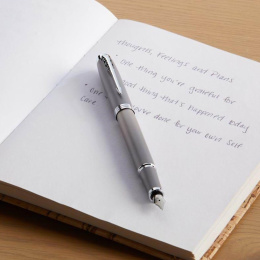 Thoughts, Feelings and Plans
• One thing you're grateful for
good thing that's happened today
• One done for your own self
care